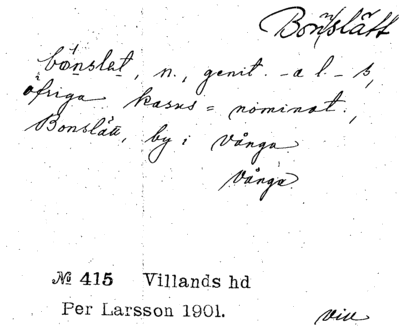 Bonslätt
bo̊nslat, n., genit. -a l. -s,
öfriga kasus = nominat.,
Bonslätt, by i Vånga
Vånga
№ 415 Villands hd
Per Larsson 1901.